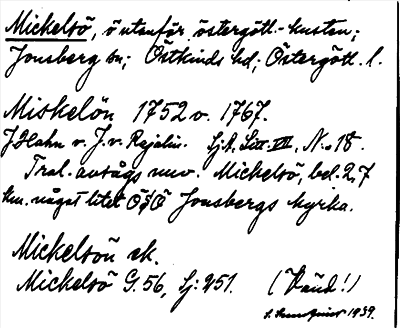 Mickelsö, ö utanför östergötl.-kusten;
Jonsberg sn; Östkinds hd; Östergötl. l.
Miskelön 1752 o. 1767.
J. Hahn o. J. v. Rejalin. Sj.k. Litt. VII, N:o 18.
Trol. avsågs nuv. Mickelsö, bel. 2,7
km. något litet Ö§Ö Jonsbergs kyrka.
Mickelsön ek.
Mickelsö G. 56, Sj: 251. (Vänd!)
1939.